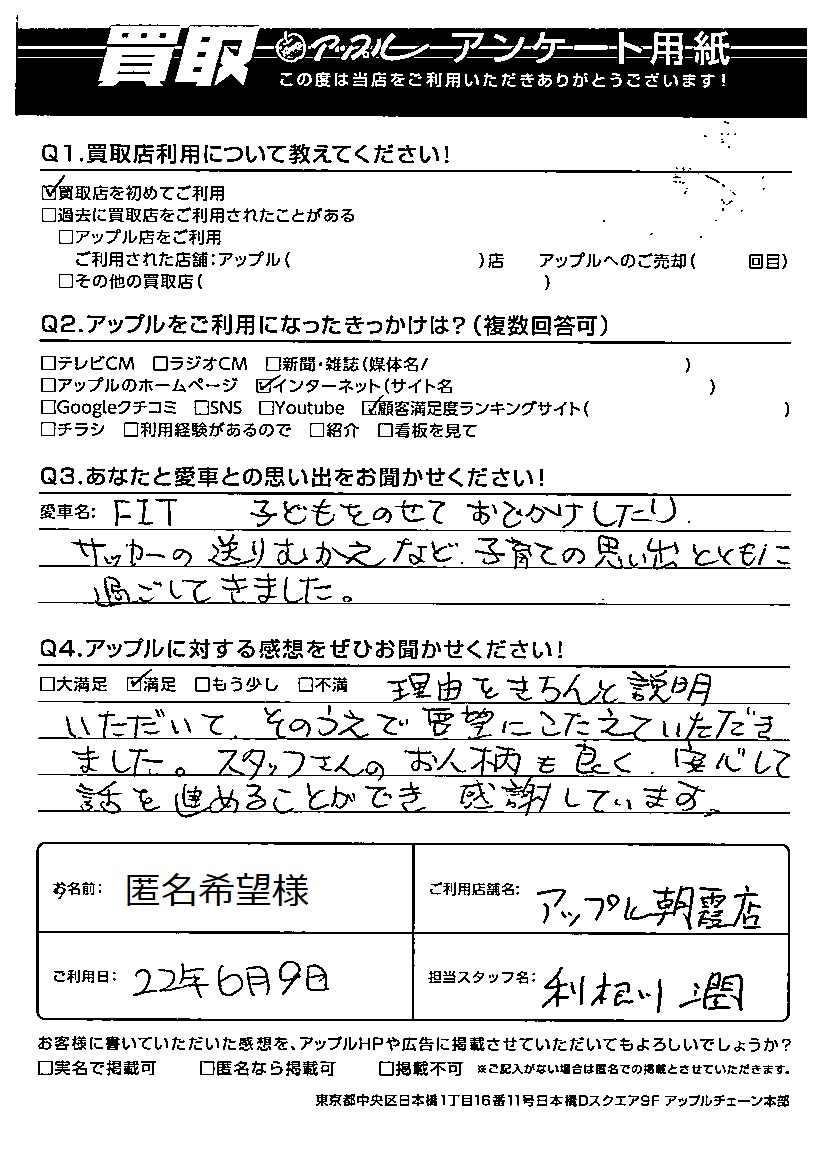 買取 アップル アンケート用紙
この度は当店をご利用いただきありがとうございます！
Q1.買取店利用について教えてください！
☑買取店を初めてご利用
□過去に買取店をご利用されたことがある
□アップル店をご利用
ご利用された店舗：アップル（ ）店 アップルへのご売却（ 回目）
□その他の買取店（ ）
Q2.アップルをご利用になったきっかけは？（複数回答可）
□テレビCM □ラジオCM □新聞・雑誌（媒体名/ ）
□アップルのホームページ ☑インターネット（サイト名 ）
□Googleクチコミ □SNS □Youtube ☑顧客満足度ランキングサイト（ ）
□チラシ □利用経験があるので □紹介 □看板を見て
Q3.あなたと愛車との思い出をお聞かせください！
愛車名： FIT 子どもをのせて おでかけしたり.
サッカーの 送りむかえ など、子育ての思い出とともに
過ごしてきました。
Q4.アップルに対する感想をぜひお聞かせください！
□大満足 ☑満足 □もう少し □不満 理由をきちんと説明
いただいて、そのうえで要望にこたえていただき
ました。スタッフさんの お人柄も良く、安心して
話を進めることができ 感謝しています。
お名前： 匿名希望様 ご利用店舗名： アップル朝霞店
ご利用日： 22年6月9日 担当スタッフ名： 利根川 潤
お客様に書いていただいた感想を、アップルHPや広告に掲載させていただいてもよろしいでしょうか？
□実名で掲載可 □匿名なら掲載可 □掲載不可 ※ご記入がない場合は匿名での掲載とさせていただきます。
東京都中央区日本橋1丁目16番11号日本橋Dスクエア9F アップルチェーン本部